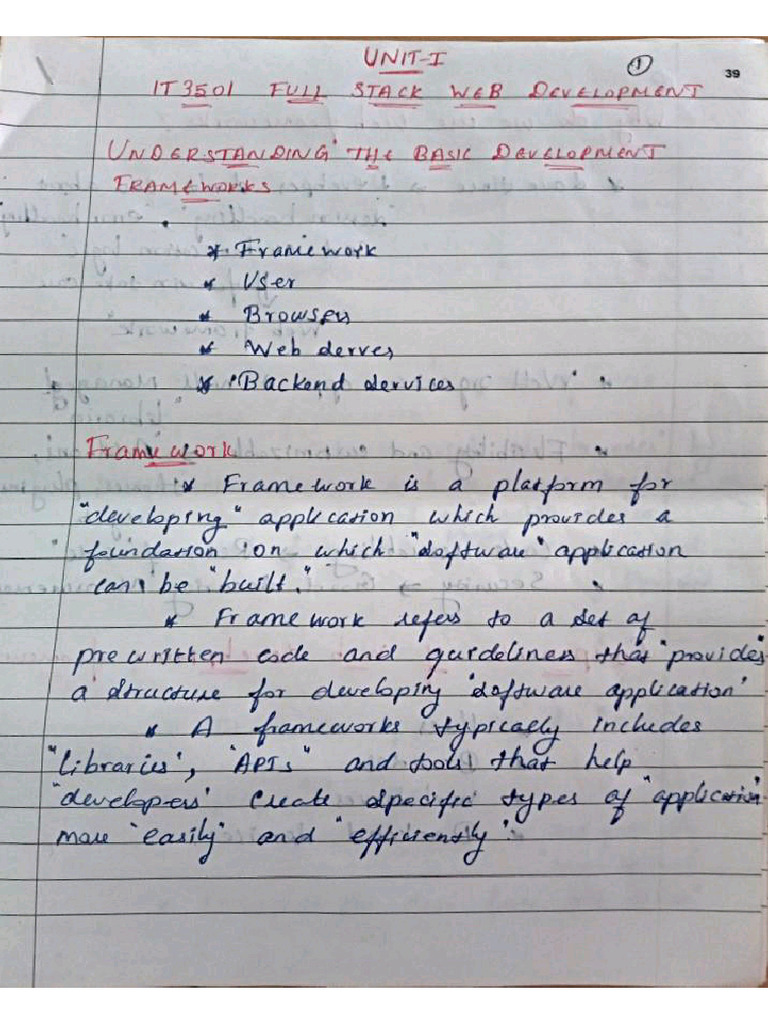 UNIT-I
①
39
IT3501 FULL STACK WEB DEVELOPMENT
UNDERSTANDING THE BASIC DEVELOPMENT
FRAMEWORKS
* Framework
* User
* Browsers
* Web derves
* Backend dervices
Framework
* Framework is a platform for
"developing" application which provides a
foundation on which "software" application
can be "built."
* Framework refers to a set of
prewritten code and guideliness that "provides
a structure for developing "software application"
* A frameworks typically includes
"libraries", "APIs" and tools that help
"developers" create specific types of "application"
more "easily" and "efficiently".